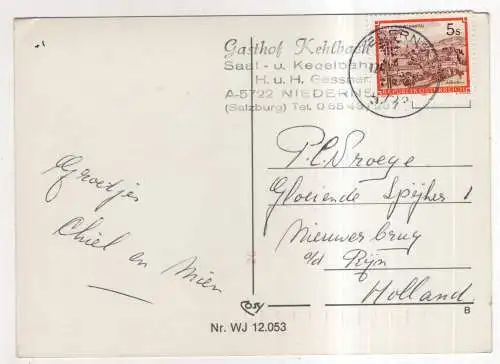 Gasthof Kehlbach
Saal - u. Kegelbahn
H. u. H. Gessner
A-5722 NIEDERNS
(Salzburg) Tel. 0 65 48/
5 s
REPUBLIK ÖSTERREICH
Groetjes
Chiel en Mien
P.C. Droege
Gloeiende Spijker 1
Nieuwerbrug
a/d Rijn
Holland
B
Nr. WJ 12.053